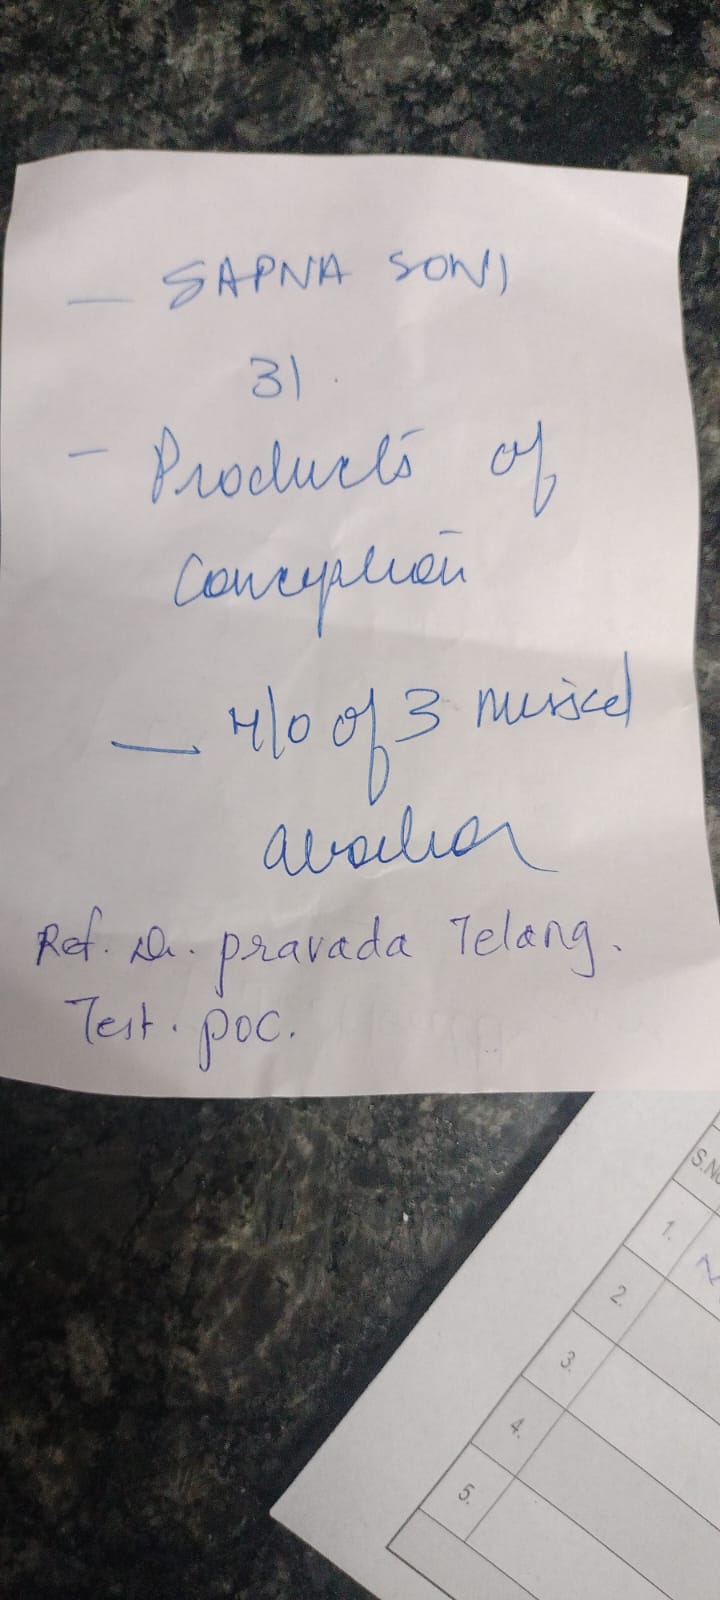 - SAPNA SONI
31.
- Products of
Conception
- H/O of 3 missed
abortion
Ref. Dr. pravada Telang.
Test. poc.
S.No
1.
2.
3.
4.
5.